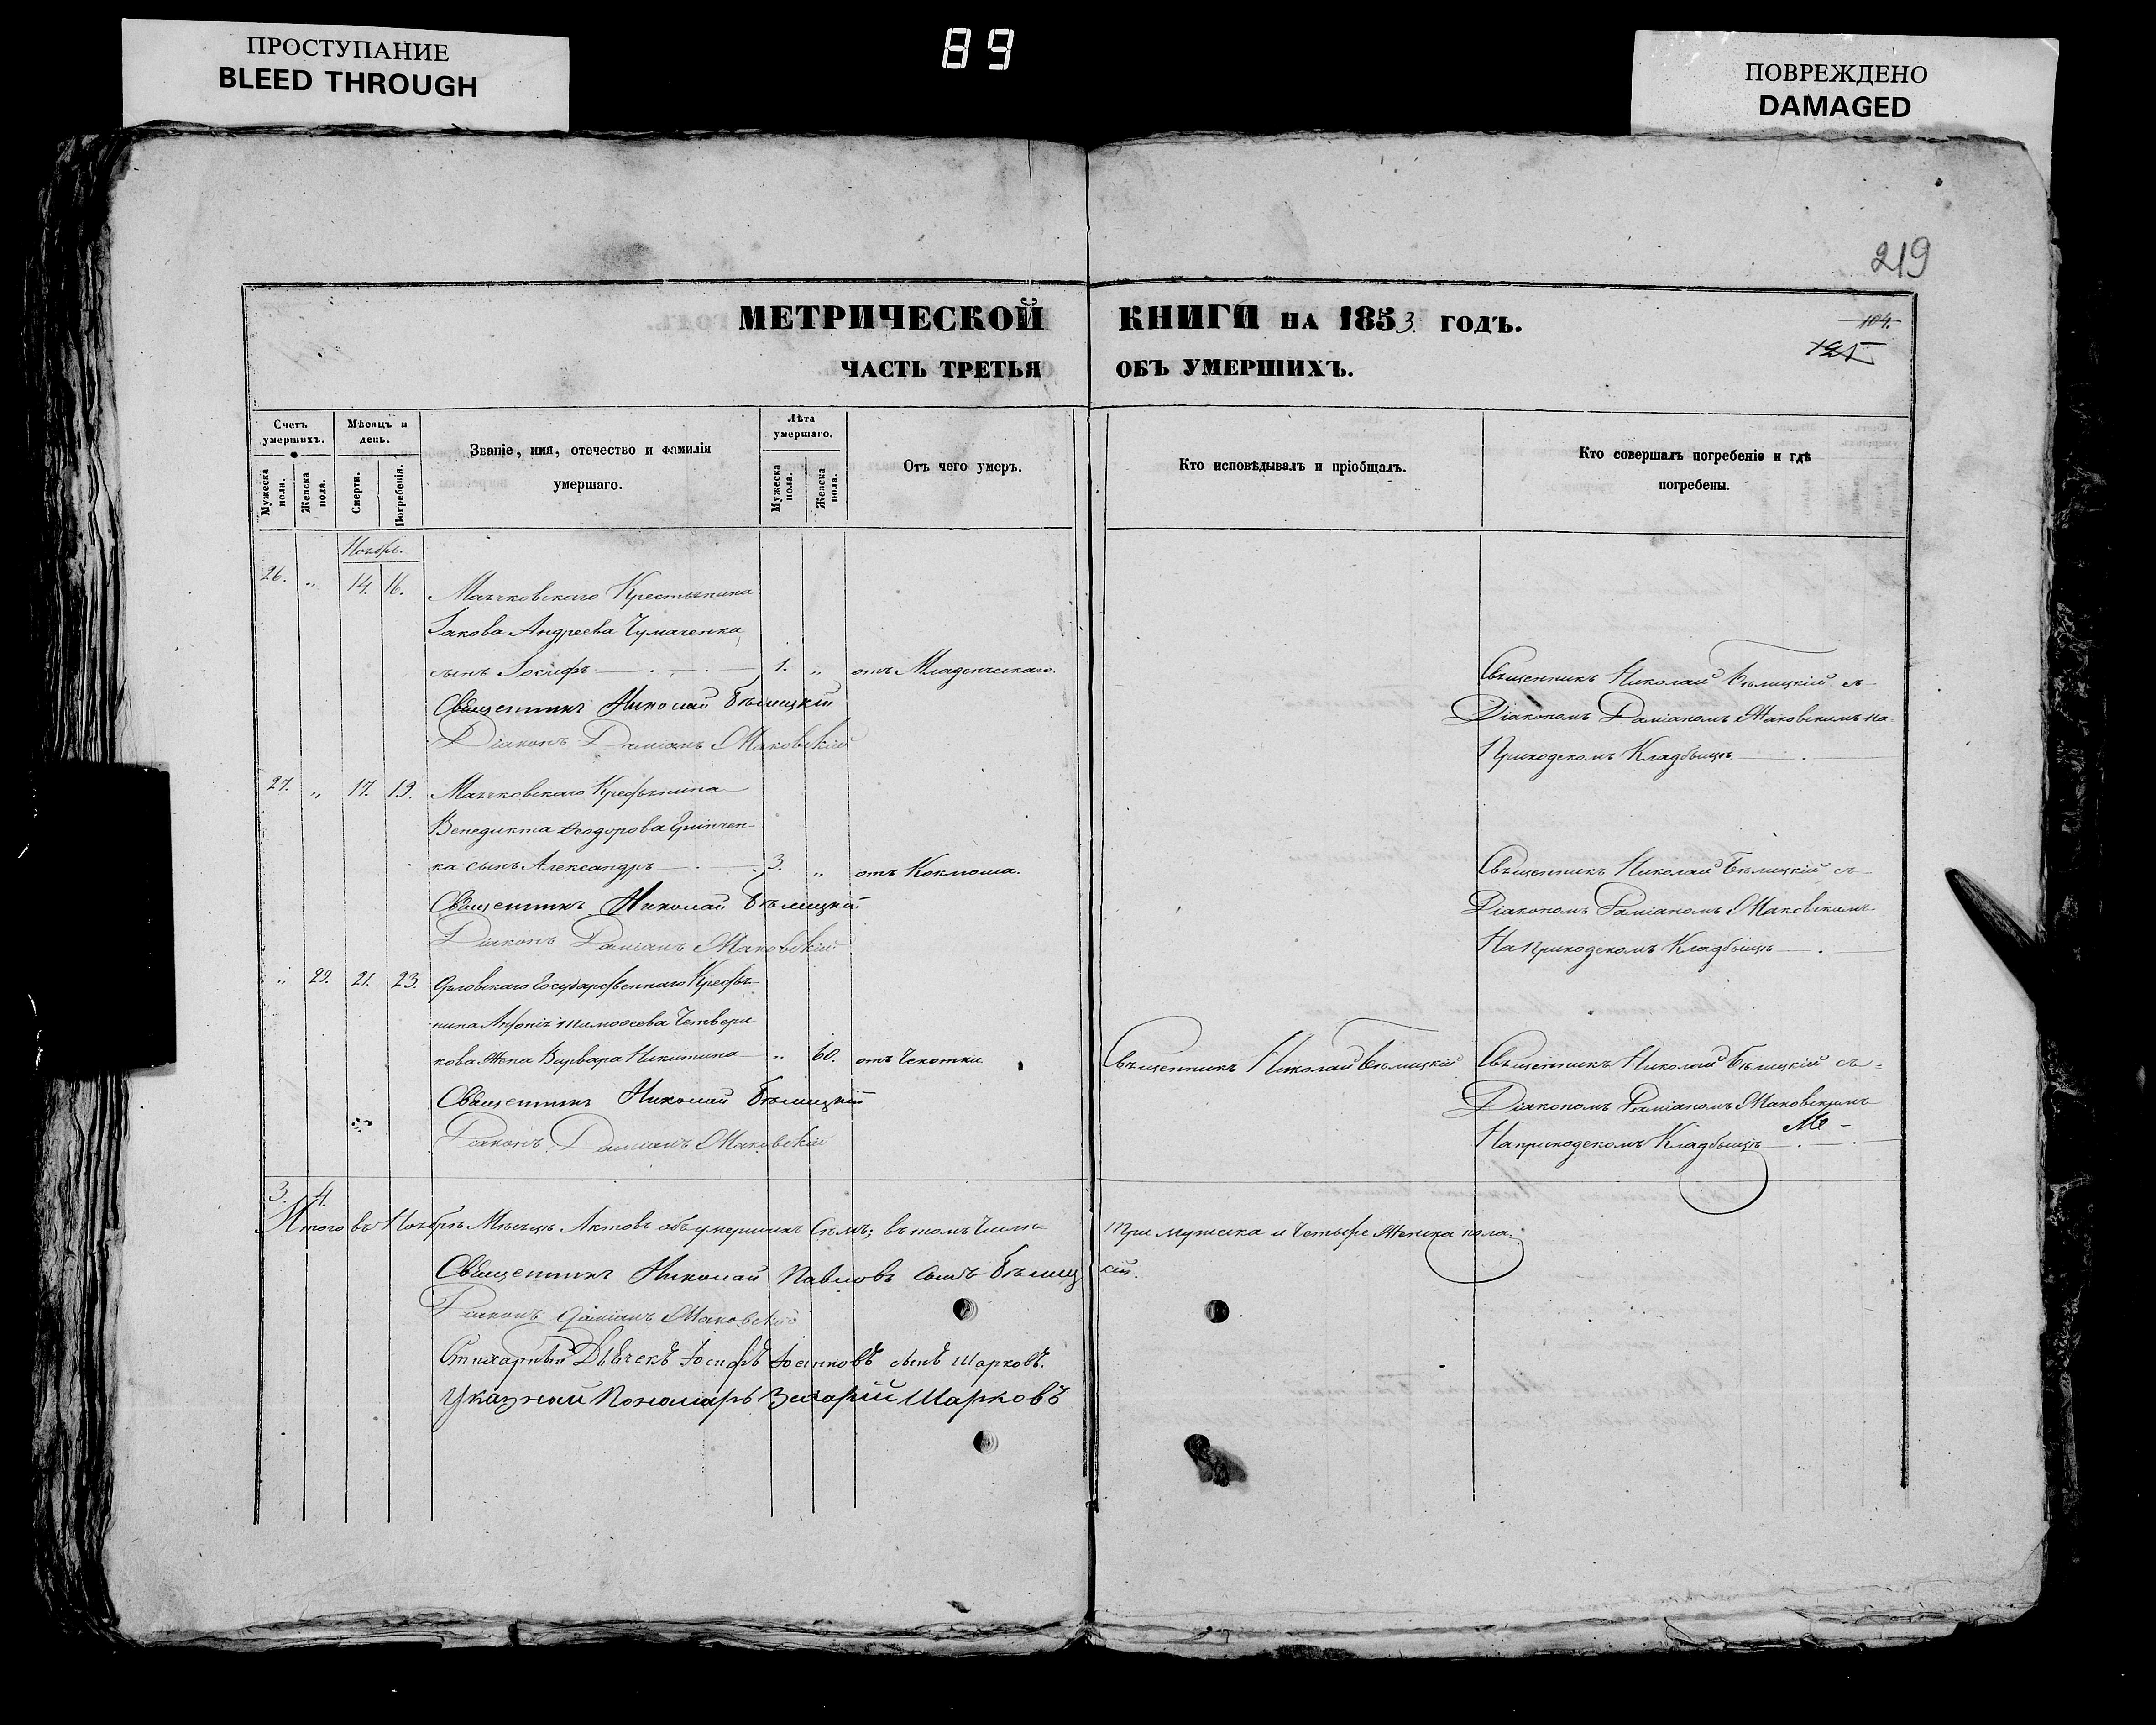 ПРОСТУПАНИЕ
BLEED THROUGH
89
ПОВРЕЖДЕНО
DAMAGED
219
МЕТРИЧЕСКОЙ КНИГИ НА 1853. ГОДЪ.
104.
125
ЧАСТЬ ТРЕТЬЯ ОБЪ УМЕРШИХЪ.
Счетъ умершихъ.
Мужеска пола.
Женска пола.
Мѣсяцъ и день.
Смерти.
Погребенія.
Званіе, имя, отечество и фамилія
умершаго.
Лѣта умершаго.
Мужеска пола.
Женска пола.
Отъ чего умеръ.
Кто исповѣдывалъ и пріобщалъ.
Кто совершалъ погребеніе и гдѣ
погребены.
Ноябрь.
26. „ 14. 16. Маячковскаго Крестьянина
Іакова Андреева Чумаченка
сынъ Іосифъ 1. „ отъ Младенческаго.
Священникъ Николай Бѣлицкій съ
Діакономъ Даміаномъ Маковскимъ на
Приходскомъ Кладбищѣ
Священникъ Николай Бѣлицкій
Діаконъ Даміанъ Маковскій
27. „ 17. 19. Маячковскаго Крестьянина
Венедикта Ѳеодорова Гринчен-
ка сынъ Александръ 3. „ отъ Коклюша.
Священникъ Николай Бѣлицкій съ
Діакономъ Даміаномъ Маковскимъ
На Приходскомъ Кладбищѣ
Священникъ Николай Бѣлицкій
Діаконъ Даміанъ Маковскій
„ 29. 21. 23. Орловскаго Государственнаго Крестья-
нина Тимоѳеева Четвери-
кова Жена Варвара Никитина „ 60. отъ Чахотки
Священникъ Николай Бѣлицкій
Священникъ Николай Бѣлицкій съ
Діакономъ Даміаномъ Маковскимъ
На приходскомъ Кладбищѣ
Священникъ Николай Бѣлицкій
Діаконъ Даміанъ Маковскій
3. 4.
Итого въ Ноябрѣ Мѣсяцѣ Актовъ объ умершихъ Семь; въ томъ Числѣ Три мужска и Четыре Женска пола.
Священникъ Николай Павловъ сынъ Бѣлицкій.
Діаконъ Даміанъ Маковскій
Стихарный Дьячекъ Іосифъ сынъ Шарковъ.
Указный Пономарь Захарій Шарковъ